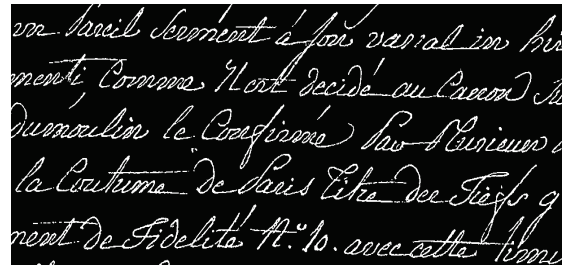 un Pareil serment à son vassal in
menti, Comme Il est decidé au Canon
Dumoulin le Confirme Par Plusieurs
la Coutume de Paris titre des Fiefs q
ment de Fidelité N.º 10. avec cette limi